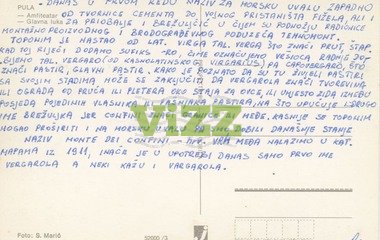 "DANAS U PRVOM REDU NAZIV ZA MORSKU UVALU ZAPADNO
OD TVORNICE CEMENTA DO VOJNOG PRISTANIŠTA FIŽELA, ALI I
ZA PRIOBALNI I BREŽULJČIĆ U ČIJEM SU PODNOŽJU RADIONICE
MONTAŽNO PROIZVODNOG I BRODOGRAĐEVNOG PODUZEĆA TEHNOMONT.
TOPONIM JE NASTAO OD LAT. VIRGA TAL. VERGA ŠTO ZNAČI PRUT, ŠTAP.
KAD TOJ RIJEČI DODAMO SUFIKS -RO ČIME OZNAČUJEMO VRŠIOCA RADNJE DO-
BIJEMO TAL. VERGARO (OD KASNOLATINSKOG VIRGARIUS) PA CAPOVERGARO, ŠTO
ZNAČI PASTIR, GLAVNI PASTIR. KAKO JE POZNATO DA SU TU ŽIVJELI PASTIRI
SA SVOJIM STADIMA MOŽE SE ZAKLJUČITI DA VERGAROLA ZNAČI TVOREVINA
ILI OGRADA OD PRUĆA ILI PLETERA OKO STAJA ZA OVCE, ILI UMJESTO ZIDA IZMEĐU
POSJEDA POJEDINIH VLASNIKA PASTIRA, NA ŠTO UPUĆUJE I DRUGO
IME BREŽULJKA JER CONFINI ZNAČI GRANICE MEĐE. KASNIJE SE TOPONIM
MOGAO PROŠIRITI I NA MORSKU UVALU DOBILI DANAŠNJE STANJE
NAZIV MONTE DEI CONFINI MEĐA NALAZIMO U KAT.
MAPAMA IZ 1911, INAČE JE U UPOTREBI DANAS SAMO PRVO IME
VERGAROLA A NEKI KAŽU I VARGAROLA.
PULA
– Amfiteatar
– Glavna luka
VIZZ
Foto: S. Marić
52000 /3